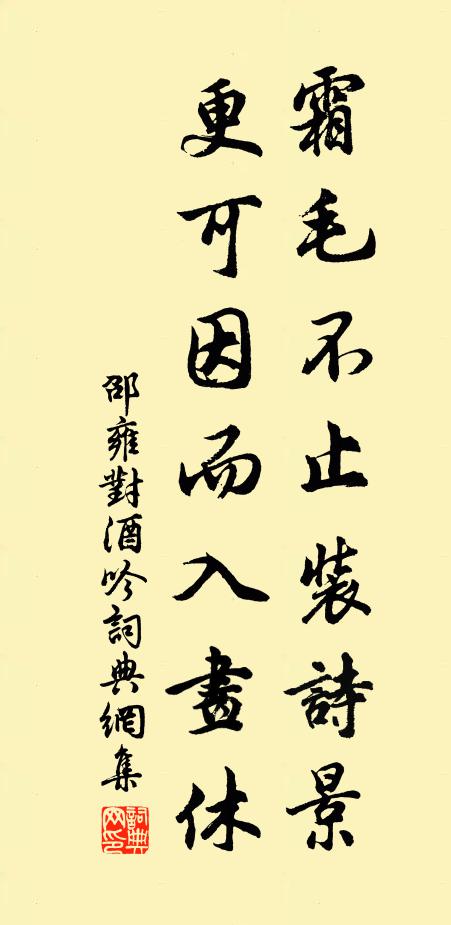 霜毛不止裝詩景
更可因而入畫休
邵雍對酒吟詞典網集
詞典
网印